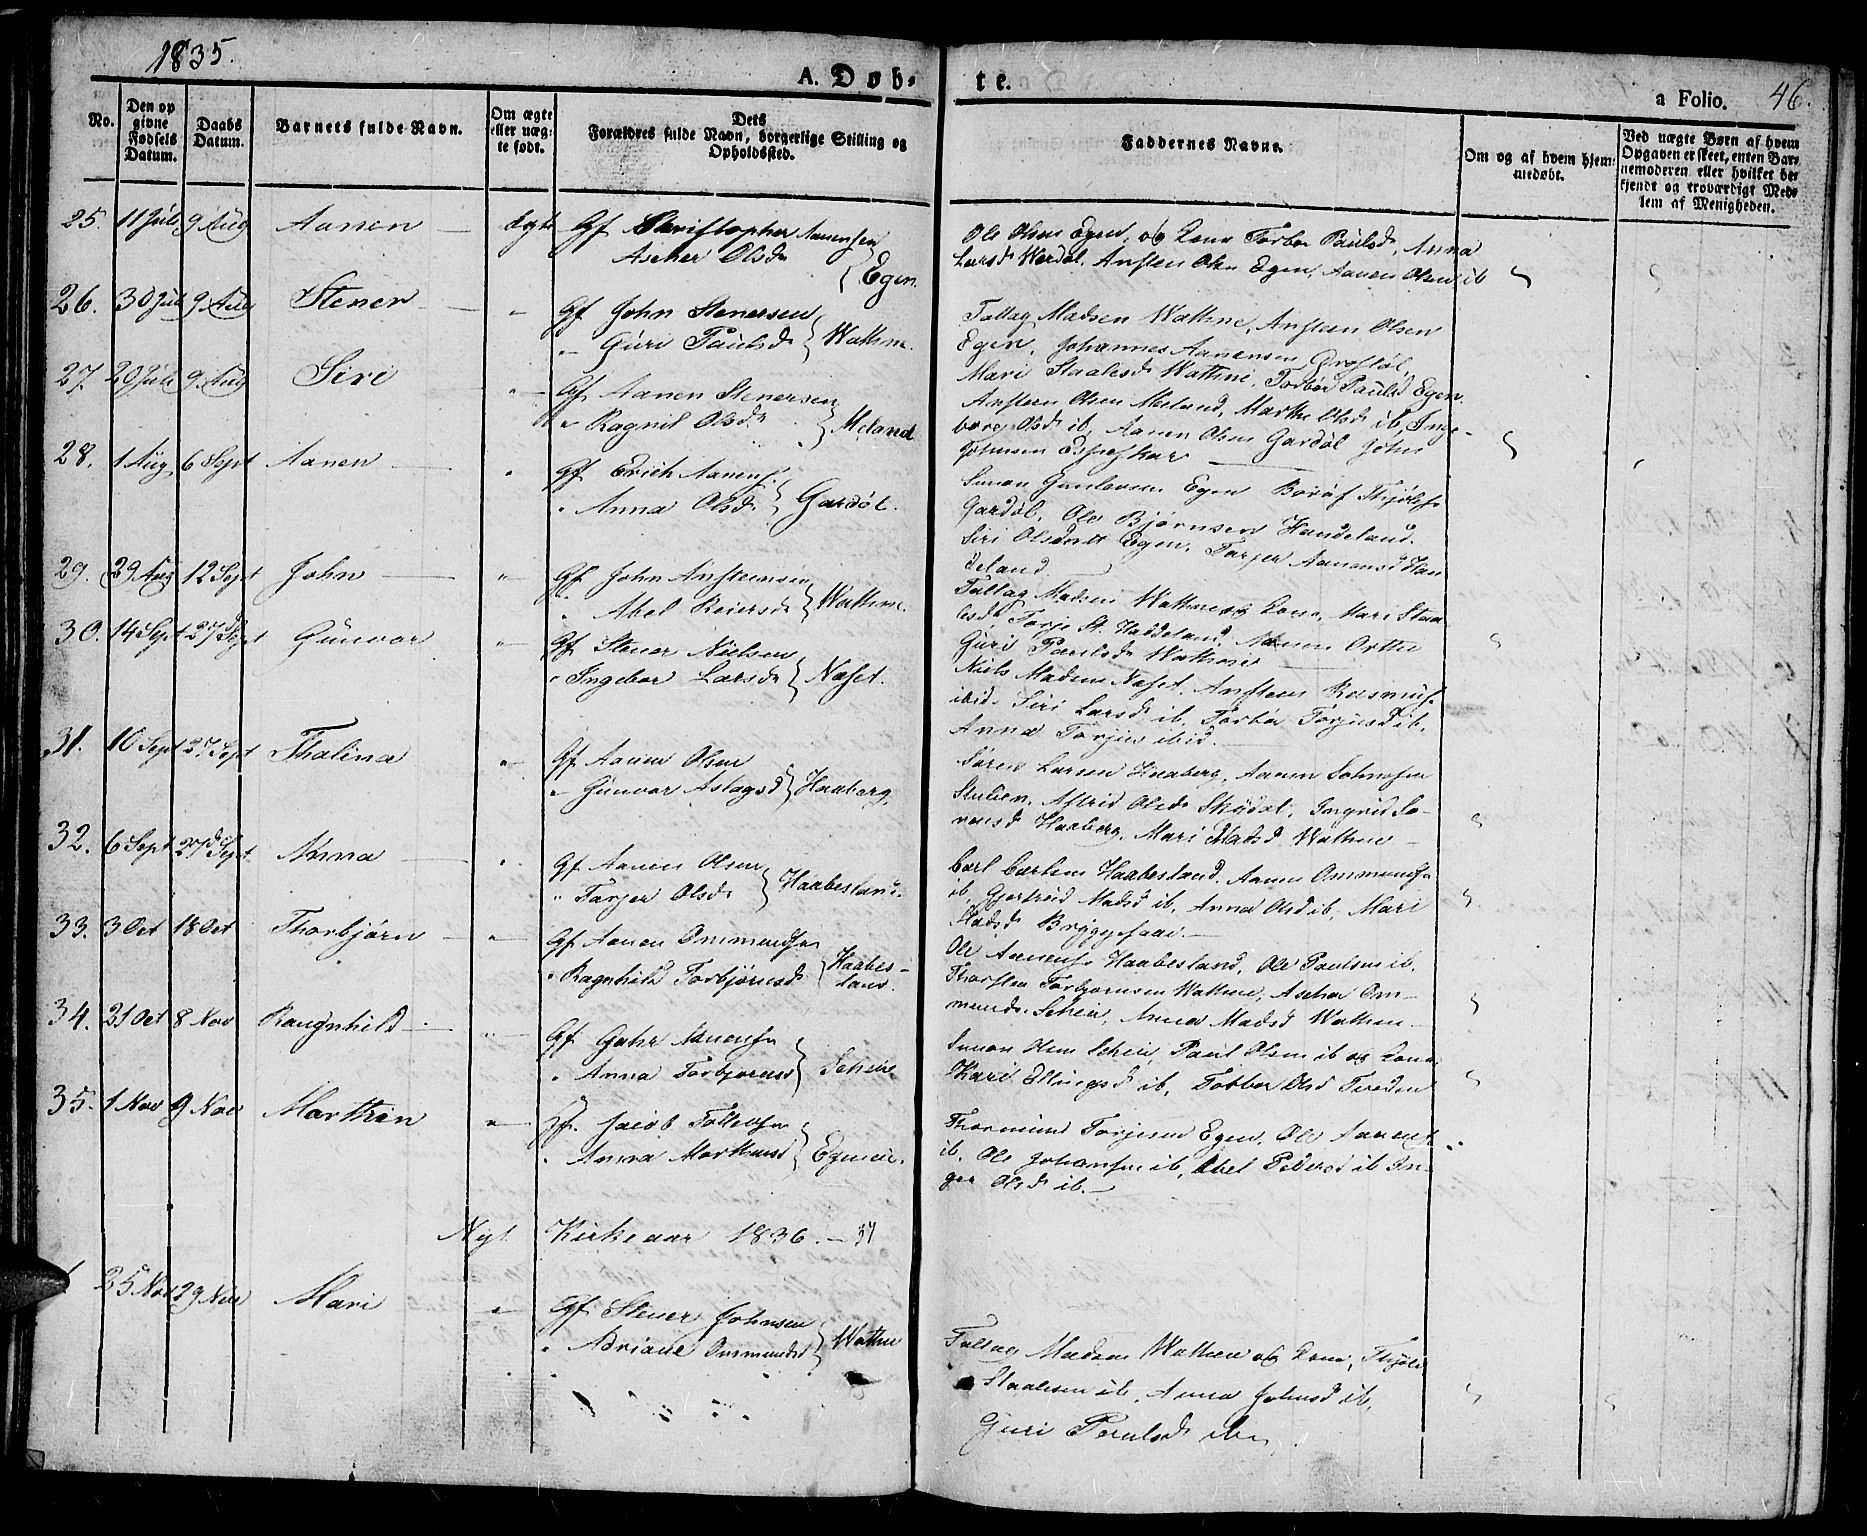 1835.
A. Døb-
te.
a Folio. 46.
No.
Den op
givne
Fødsels
Datum.
Daabs
Datum.
Barnets fulde Navn.
Om ægte
eller uæg-
te født.
Dets
Forældres fulde Navn, borgerlige Stilling og
Opholdssted.
Faddernes Navne.
Om og af hvem hjem-
medøbt.
Ved uægte Børn af hvem
Opgaven er skeet, enten Bar-
nemoderen eller hvilket be-
kjendt og troværdigt Med-
lem af Menigheden.
25. 11 Juli 9 Aug Aanen — ægte Gf Christopher Aanensen
Ascher Olsd. Egen
Ole Olsen Egen, og Kone Torbor Paulsd, Anna
Larsd Werdal, Ansten Olsn Egen, Aanen Olsen ib
26. 30 Juli 9 Aug Stener — " Gf John Stenersen
" Guri Paulsd. Wathne.
Tallag Madsen Wathne, Ansten Olsen
Egen, Johannes Aanensen
Mari Staalesd Wathne, Torbor Paulsd Egen.
27. 20 Juli 9 Aug Siri " Gf Aanen Stenersen
" Ragnil Olsd. Meland
Ansten Olsen Meland, Marthe Olsd ib, Inge-
borg Olsd ib, Aanen Olsen Gardøl John
Johnsen
28. 1 Aug 6 Sept Aanen — " Gf Erich Aanens.
" Anna Olsd. Gardøl.
Simon Gunlevsen Egen
Gardøl, Ole Bjørnsen Handeland.
Siri Olsdatt Egen, Tarjer Aanensd Han
deland.
29. 29 Aug 12 Sept John — " Gf John Anstensen
" Abel Reiersd. Wathne.
Tallag Madsen Wathne og Kone, Mari Staa
lesd Torje St. Haddeland,
Guri Paulsd Wathne
30. 14 Sept 27d Sept Gunvor " Gf Stener Nielsen
" Ingebor Larsd. Naset.
Niels Madsen Naset, Ansten Rasmus.
ibid. Siri Larsd ib, Torbor Torjusd ib.
Anna Torjus ibid.
31. 10 Sept 27 Sept Thalina " Gf Aanen Olsen
" Gunvor Aslagsd Haaberg.
Søren Larsen Haaberg, Aanen
Stulien, Astrid Olsd. Skydal, Ingrid Sø-
rensd Haaberg, Mari Madsd Wathne —
32. 6 Sept 27d Sept. Anna — " Gf Aanen Olsen
" Tarjer Olsd. Haabesland.
Carl Carlsen Haabesland, Aanen Ommundsn
ib, Gjertrud Madsd ib, Anna Olsd ib, Mari
Madsd Bryggesaae. —
33. 3 Oct 18 Oct Thorbjørn — " Gf Aanen Ommundsn
" Ragnhild Torbjørnsd. Haabes-
land.
Ole Aanensn Haabesland, Ole Paulsen ib.
Thorsten Torbjørnsen Wathne, Ascher Om-
munds. Scheie, Anna Madsd Wathne —
34. 21 Oct 8 Nov Raugnhild — " Gf Aanensn
" Anna Torbjørnsd Scheie
Simon Olsen Scheie, Paul Olsen ib og Kone
Kari Ellingsd ib, Torbor Olsd
35. 1 Nov 9 Nov Marthin " Gf. Jacob Tollevsn
" Anna Marthinsd Egeneie.
Thormund Torjesen Egen, Ole Aanens.
ib, Ole Johansen ib, Abel Pedersd ib In-
ger Olsd. ib. —
Nyt Kirkeaar 1836. — 37
1 25 Nov 29 Nov Mari " Gf. Stener Johnsen
" Adriane Ommundsd Wathne
Tallag Madsen Wathne og Kone,
Staalesen ib, Anna Johnsd ib,
Guri Paulsd